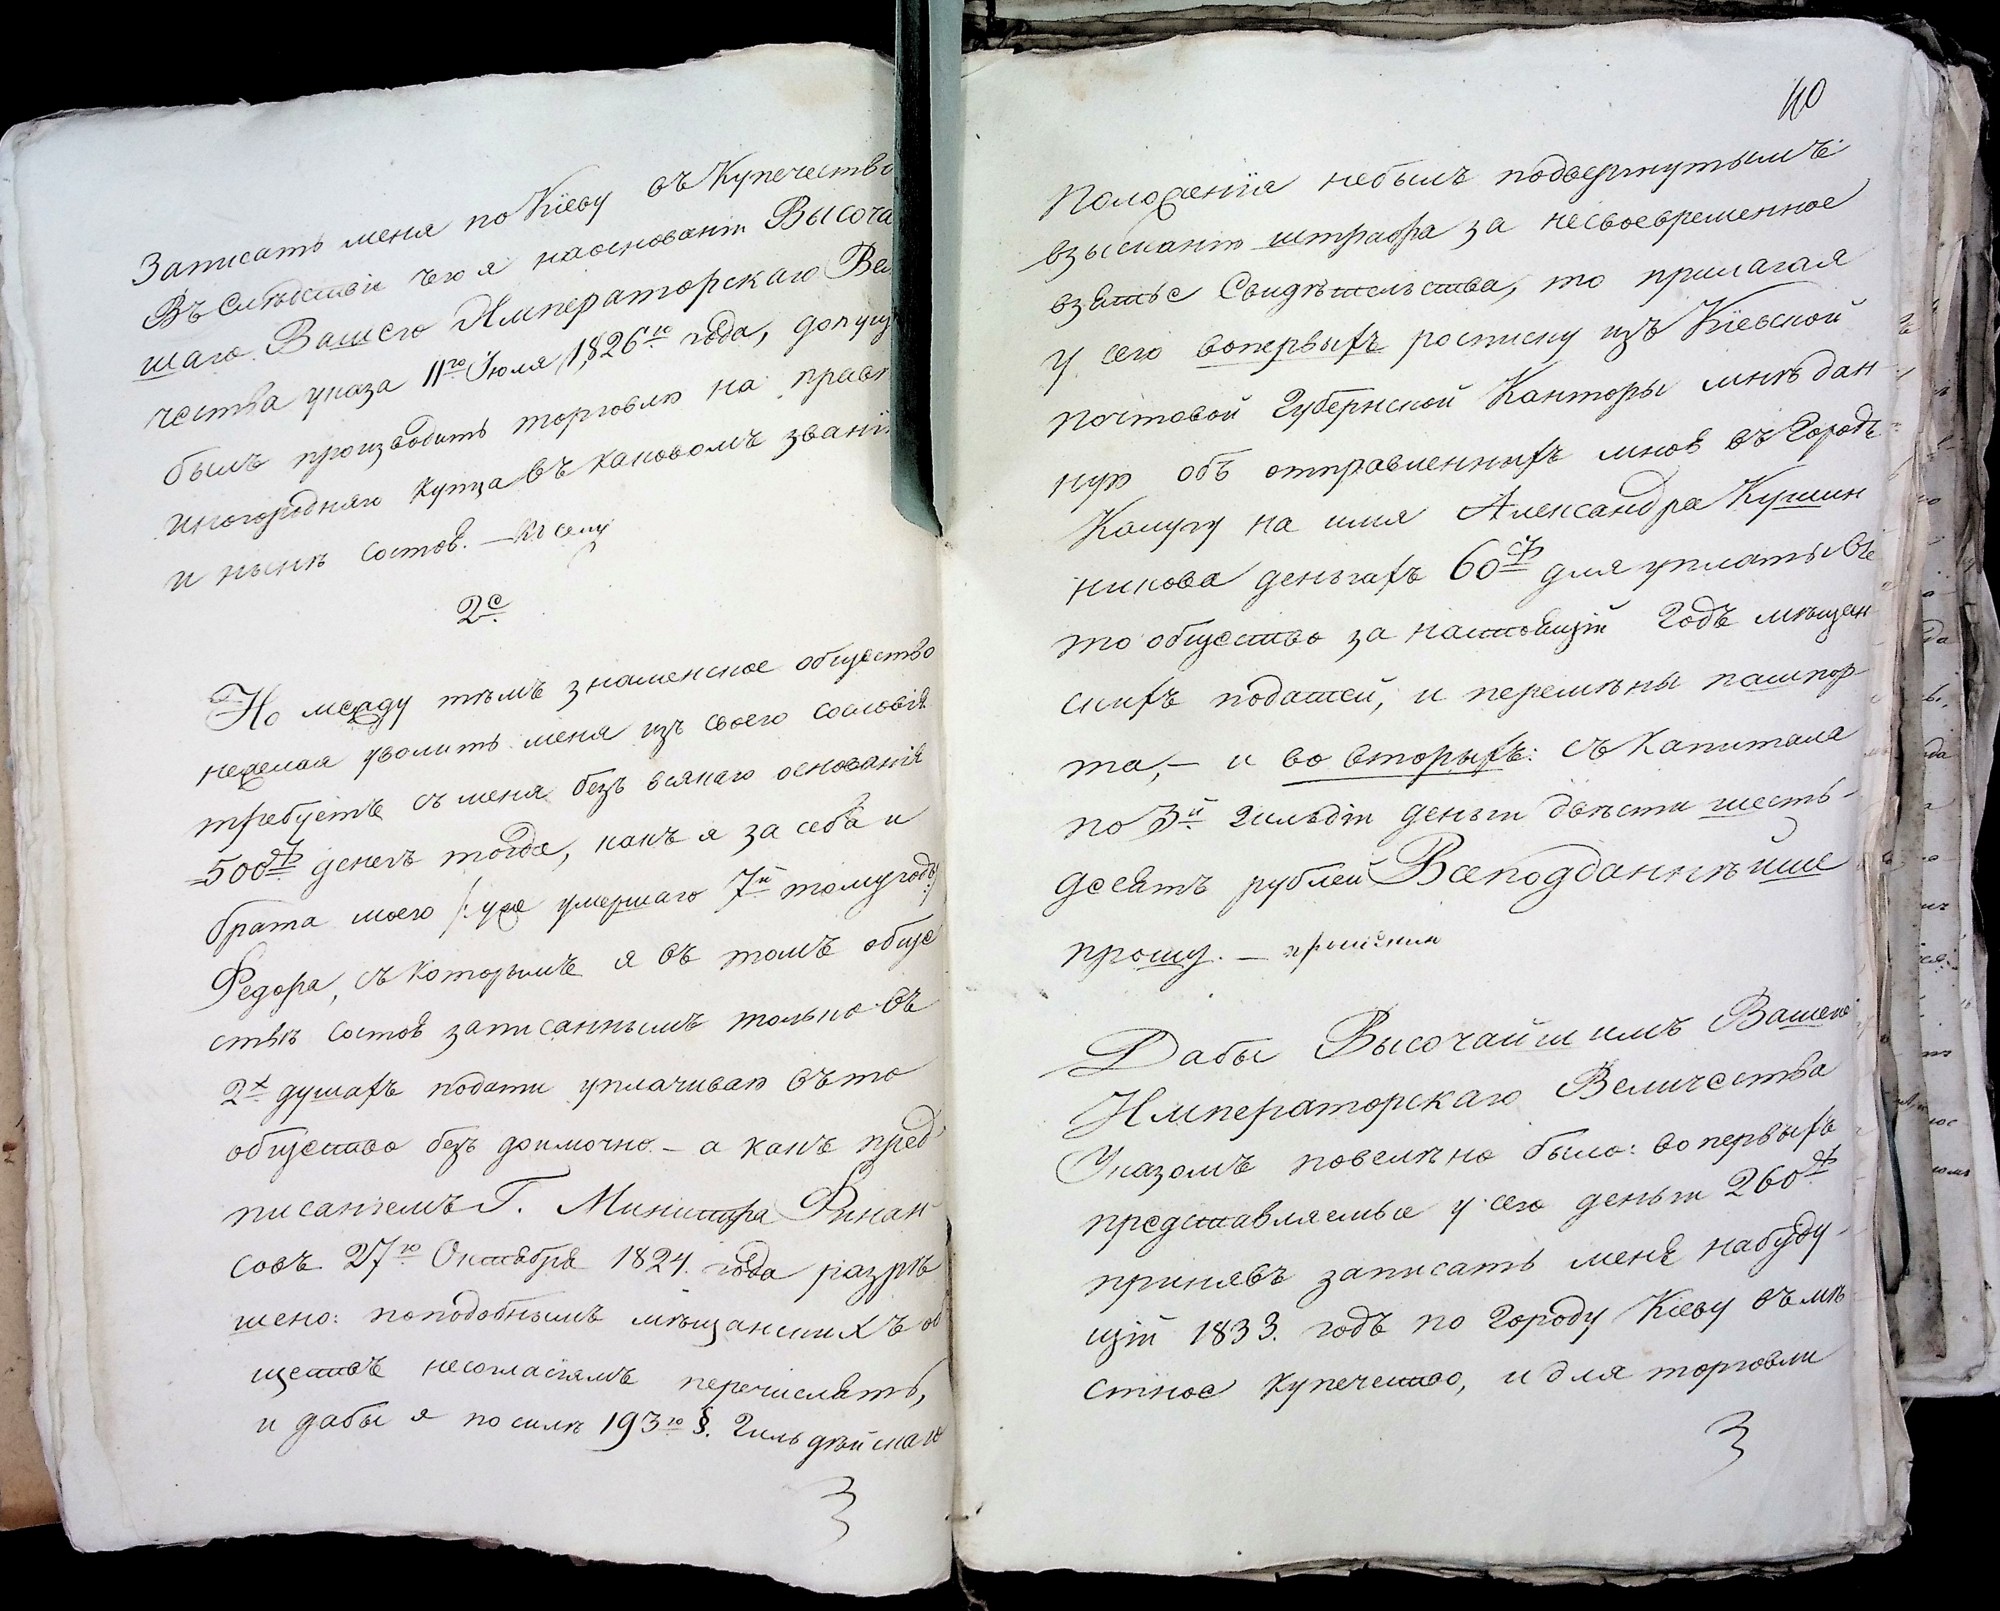 Записать меня по Кіеву въ Купечество
Въ Слѣдствіи чего я наоснованіи Высоча
шаго Вашего Императорскаго Вел
чества указа 11го Іюля 1826го года, допущ
былъ производить торговлю на прав
иногородняго купца въ каковомъ званіи
и нынѣ состою. — Къ сему
2е
Но между тѣмъ знаменское общество
нежелая уволить меня изъ своего сословія
требуетъ съ меня безъ всякаго основанія
500 р денегъ тогда, какъ я за себя и
брата моего /: уже умершаго 7й томугодъ :/
Федора, съ которымъ я въ томъ обще
ствѣ состоя записаннымъ только въ
2х душахъ подати уплачиваю въ то
общество безъ доимочно. — а какъ пред
писаніемъ Г. Министра Финан
совъ 27го Октября 1824. года разрѣ
шено: поподобнымъ мѣщанскихъ об
ществъ несогласіямъ перечислять,
и дабы я посилѣ 193го §. Гильдейскаго
40
Положенія небылъ подвергнутымъ
взысканію штрафа за несвоевременное
взятье Свидѣтельства, то прилагая
у сего вопервыхъ росписку изъ Кіевской
почтовой Губернской Канторы мнѣ дан
ную объ отправленныхъ мною въ Городъ
Калугу на имя Александра Кушин
никова деньгахъ 60 ср для уплаты въ
то общество за настоящій Годъ мѣщан
скихъ податей, и перемѣны пашпор
та, — и во вторыхъ: съ Капитала
по 3й Гильдіи деньги двѣсти шесть-
десятъ рублей Всеподданнѣйше
прошу. —
Дабы Высочайшимъ Вашего
Императорскаго Величества
Указомъ повелѣно было: вопервыхъ
представляемые у сего деньги 260 р
принявъ записать меня набуду-
щій 1833. годъ по Городу Кіеву въ мѣ
стное купечество, и для торговли